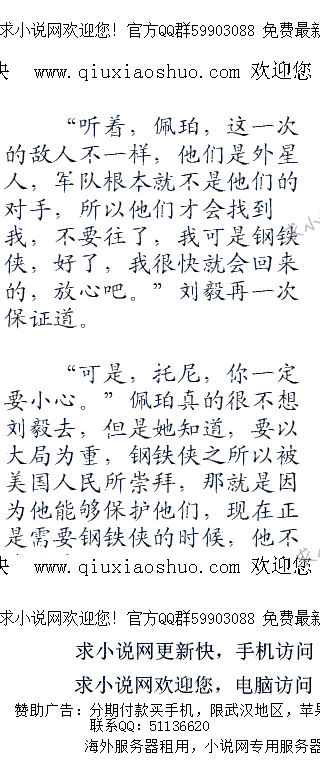 求小说网欢迎您! 官方QQ群59903088 免费最新
快 www.qiuxiaoshuo.com 欢迎您
“听着，佩珀，这一次
的敌人不一样，他们是外星
人，军队根本就不是他们的
对手，所以他们才会找到
我，不要往了，我可是钢铁
侠，好了，我很快就会回来
的，放心吧。”刘毅再一次
保证道。
“可是，托尼，你一定
要小心。”佩珀真的很不想
刘毅去，但是她知道，要以
大局为重，钢铁侠之所以被
美国人民所崇拜，那就是因
为他能够保护他们，现在正
是需要钢铁侠的时候，他不
快 www.qiuxiaoshuo.com 欢迎您
求小说网欢迎您! 官方QQ群59903088 免费最新
求小说网更新快，手机访问
求小说网欢迎您，电脑访问
赞助广告：分期付款买手机，限武汉地区，苹果
联系QQ：51136620
海外服务器租用，小说网专用服务器